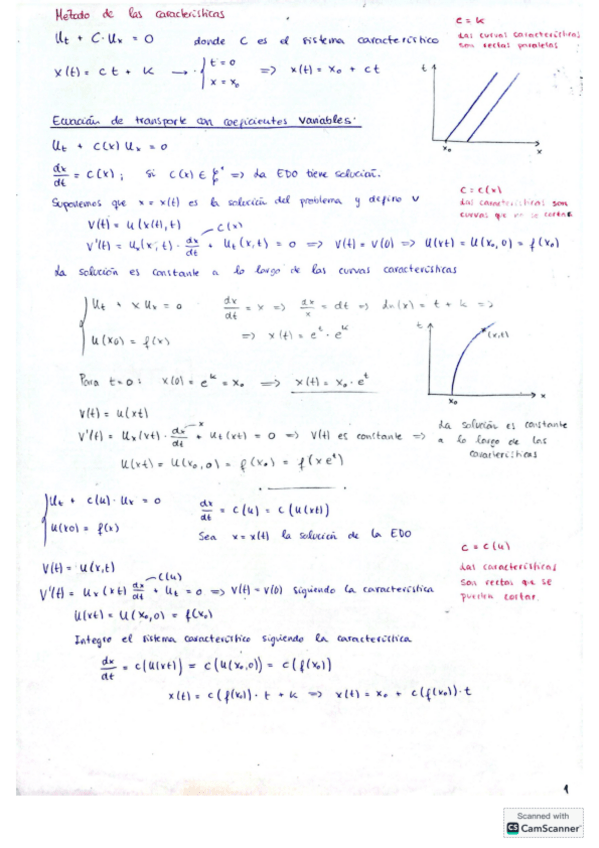 Método de las características
c = k
Las curvas características
son rectas paralelas
Ut + C·Ux = 0 donde C es el sistema característico
x(t) = ct + k → { t = 0 x = x₀ => x(t) = x₀ + ct
t
x₀
x
Ecuación de transporte con coeficientes variables:
Ut + c(x) Ux = 0
dx/dt = c(x); Si c(x) ∈ => La EDO tiene solución.
c = c(x)
Las características son
curvas que no se cortan
Suponemos que x = x(t) es la solución del problema y defino v
V(t) = u(x(t),t) c(x)
V'(t) = Ux(x,t) · dx/dt + Ut(x,t) = 0 => V(t) = V(0) => U(xt) = U(x₀,0) = f(x₀)
La solución es constante a lo largo de las curvas características
{ Ut + x Ux = 0 dx/dt = x => dx/x = dt => ln(x) = t + k =>
u(x0) = f(x) => x(t) = e^t · e^k
t
(x,t)
x₀
x
Para t=0: x(0) = e^k = x₀ => x(t) = x₀ · e^t
V(t) = u(xt)
V'(t) = Ux(xt) · dx/dt x + Ut(xt) = 0 => V(t) es constante =>
La solución es constante
a lo largo de las
características
U(xt) = U(x₀,0) = f(x₀) = f(xe^t)
{ Ut + c(u)·Ux = 0 dx/dt = c(u) = c(u(xt))
u(x0) = f(x) Sea x = x(t) la solución de la EDO
c = c(u)
Las características
son rectas que se
pueden cortar.
V(t) = u(x,t)
V'(t) = Ux(xt) dx/dt c(u) + Ut = 0 => V(t) = V(0) siguiendo la característica
U(xt) = U(x₀,0) = f(x₀)
Integro el sistema característico siguiendo la característica
dx/dt = c(u(xt)) = c(u(x₀,0)) = c(f(x₀))
x(t) = c(f(x₀))·t + k => x(t) = x₀ + c(f(x₀))·t
1
Scanned with
CS CamScanner